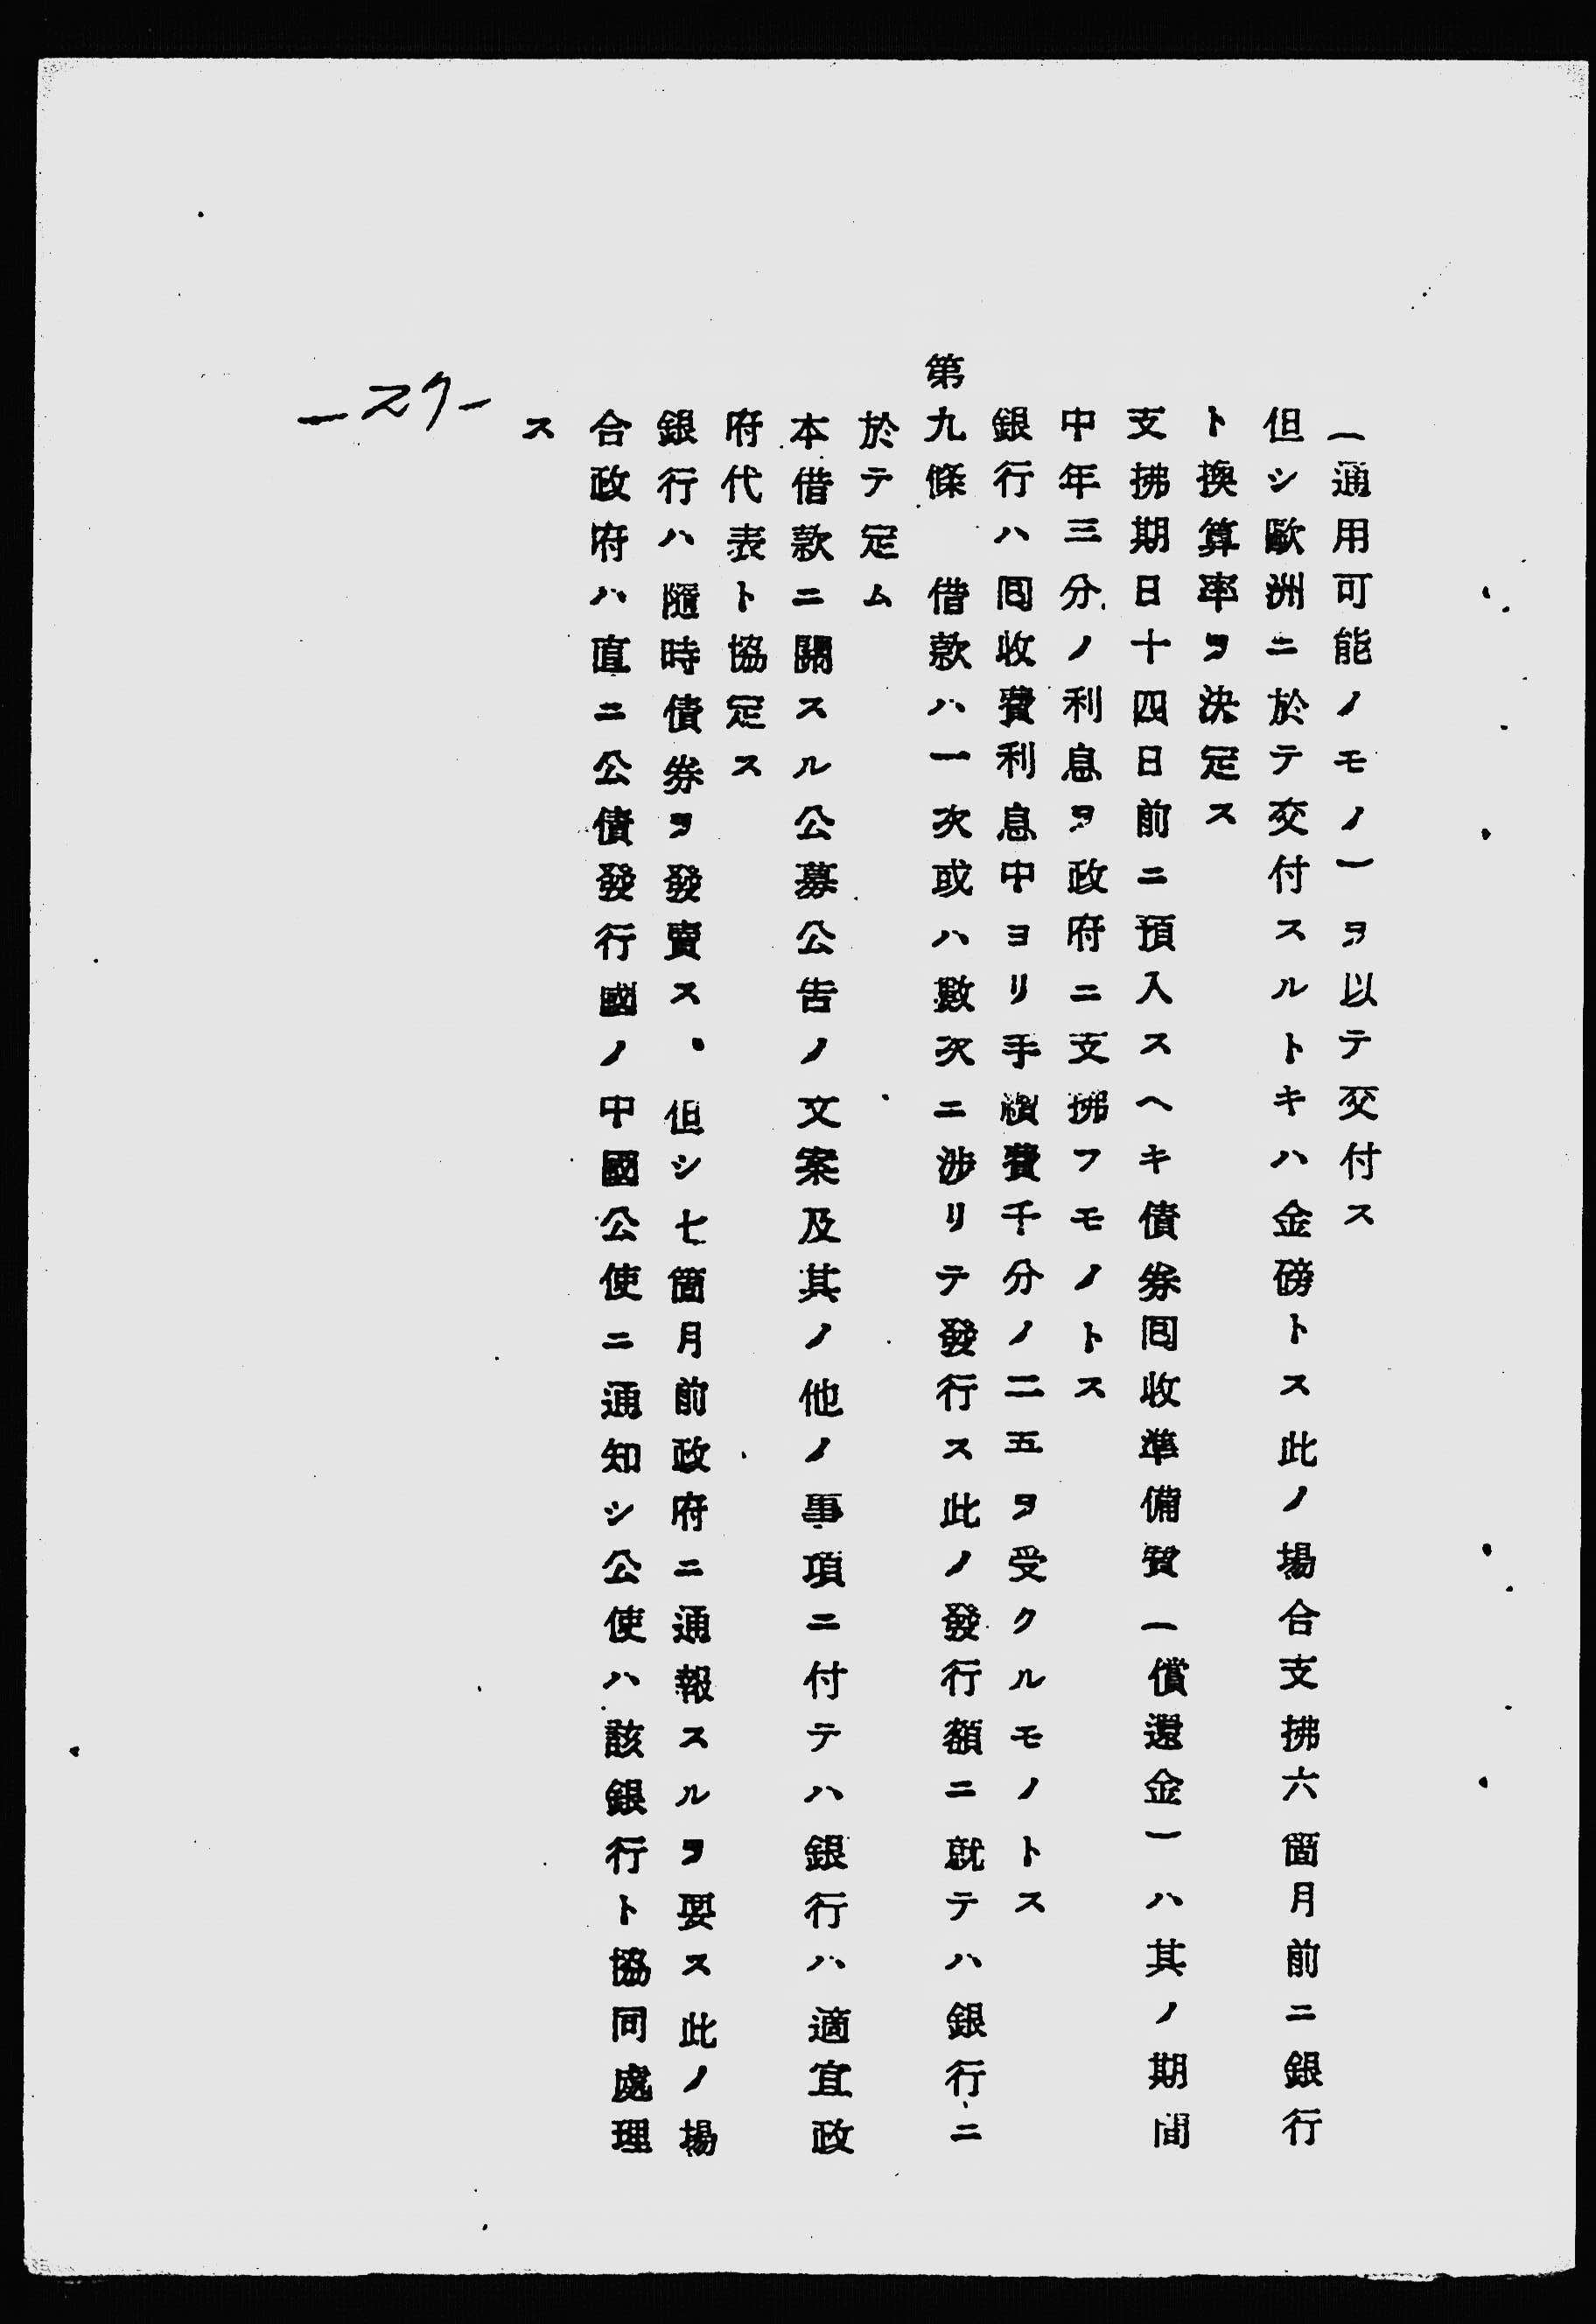 （通用可能ノモノ）ヲ以テ交付ス
但シ歐洲ニ於テ交付スルトキハ金磅トス此ノ場合支拂六箇月前ニ銀行
ト換算率ヲ決定ス
支拂期日十四日前ニ預入スヘキ債券囘收準備資（償還金）ハ其ノ期間
中年三分ノ利息ヲ政府ニ支拂フモノトス
銀行ハ囘收費利息中ヨリ手續費千分ノ二五ヲ受クルモノトス
第九條　借款ハ一次或ハ數次ニ涉リテ發行ス此ノ發行額ニ就テハ銀行ニ
於テ定ム
本借款ニ關スル公募公告ノ文案及其ノ他ノ事項ニ付テハ銀行ハ適宜政
府代表ト協定ス
銀行ハ隨時債券ヲ發賣ス、但シ七箇月前政府ニ通報スルヲ要ス此ノ場
合政府ハ直ニ公債發行國ノ中國公使ニ通知シ公使ハ該銀行ト協同處理
ス
—27—